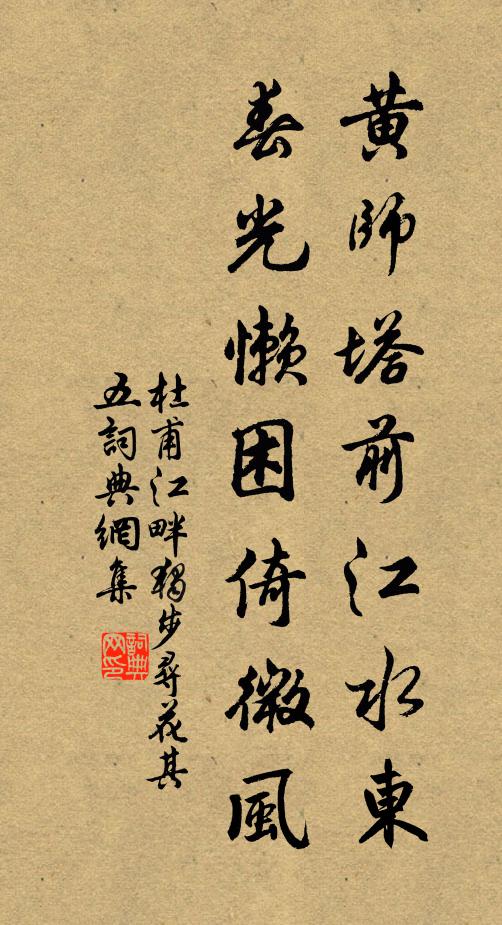 黄師塔前江水東
春光懶困倚微風
杜甫江畔獨步尋花其
五詞典網集
詞典
网印